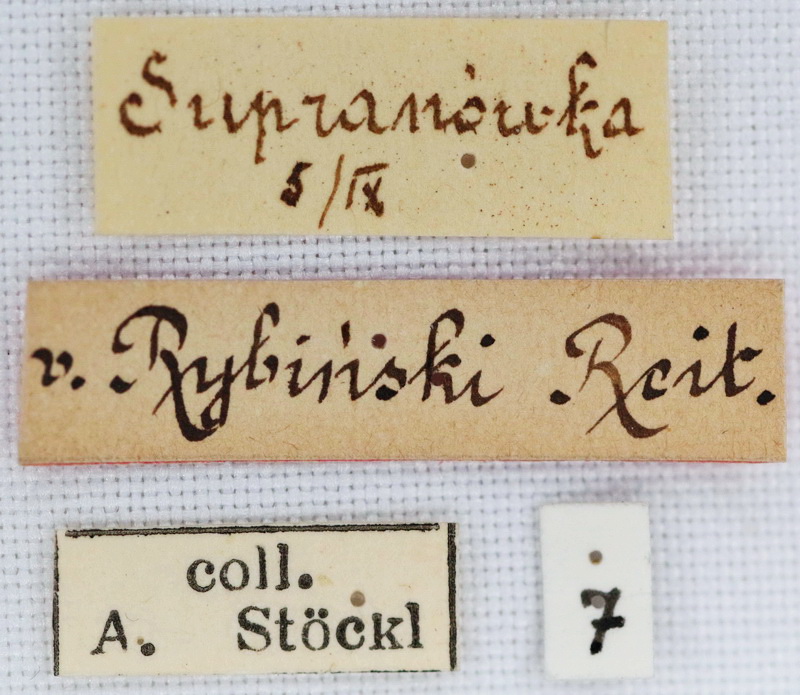 Supranówka
5/IX
v. Rybiński Reit.
coll.
A. Stöckl
7